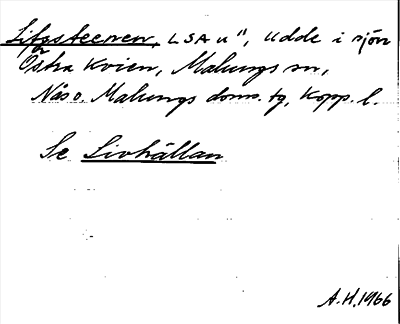 Lifgsteenen, LSA u", Udde i sjön
Östra Kvien, Malungs sn,
Nås o. Malungs doms. tg, Kopp. l.
Se Livhällan
A.H. 1966